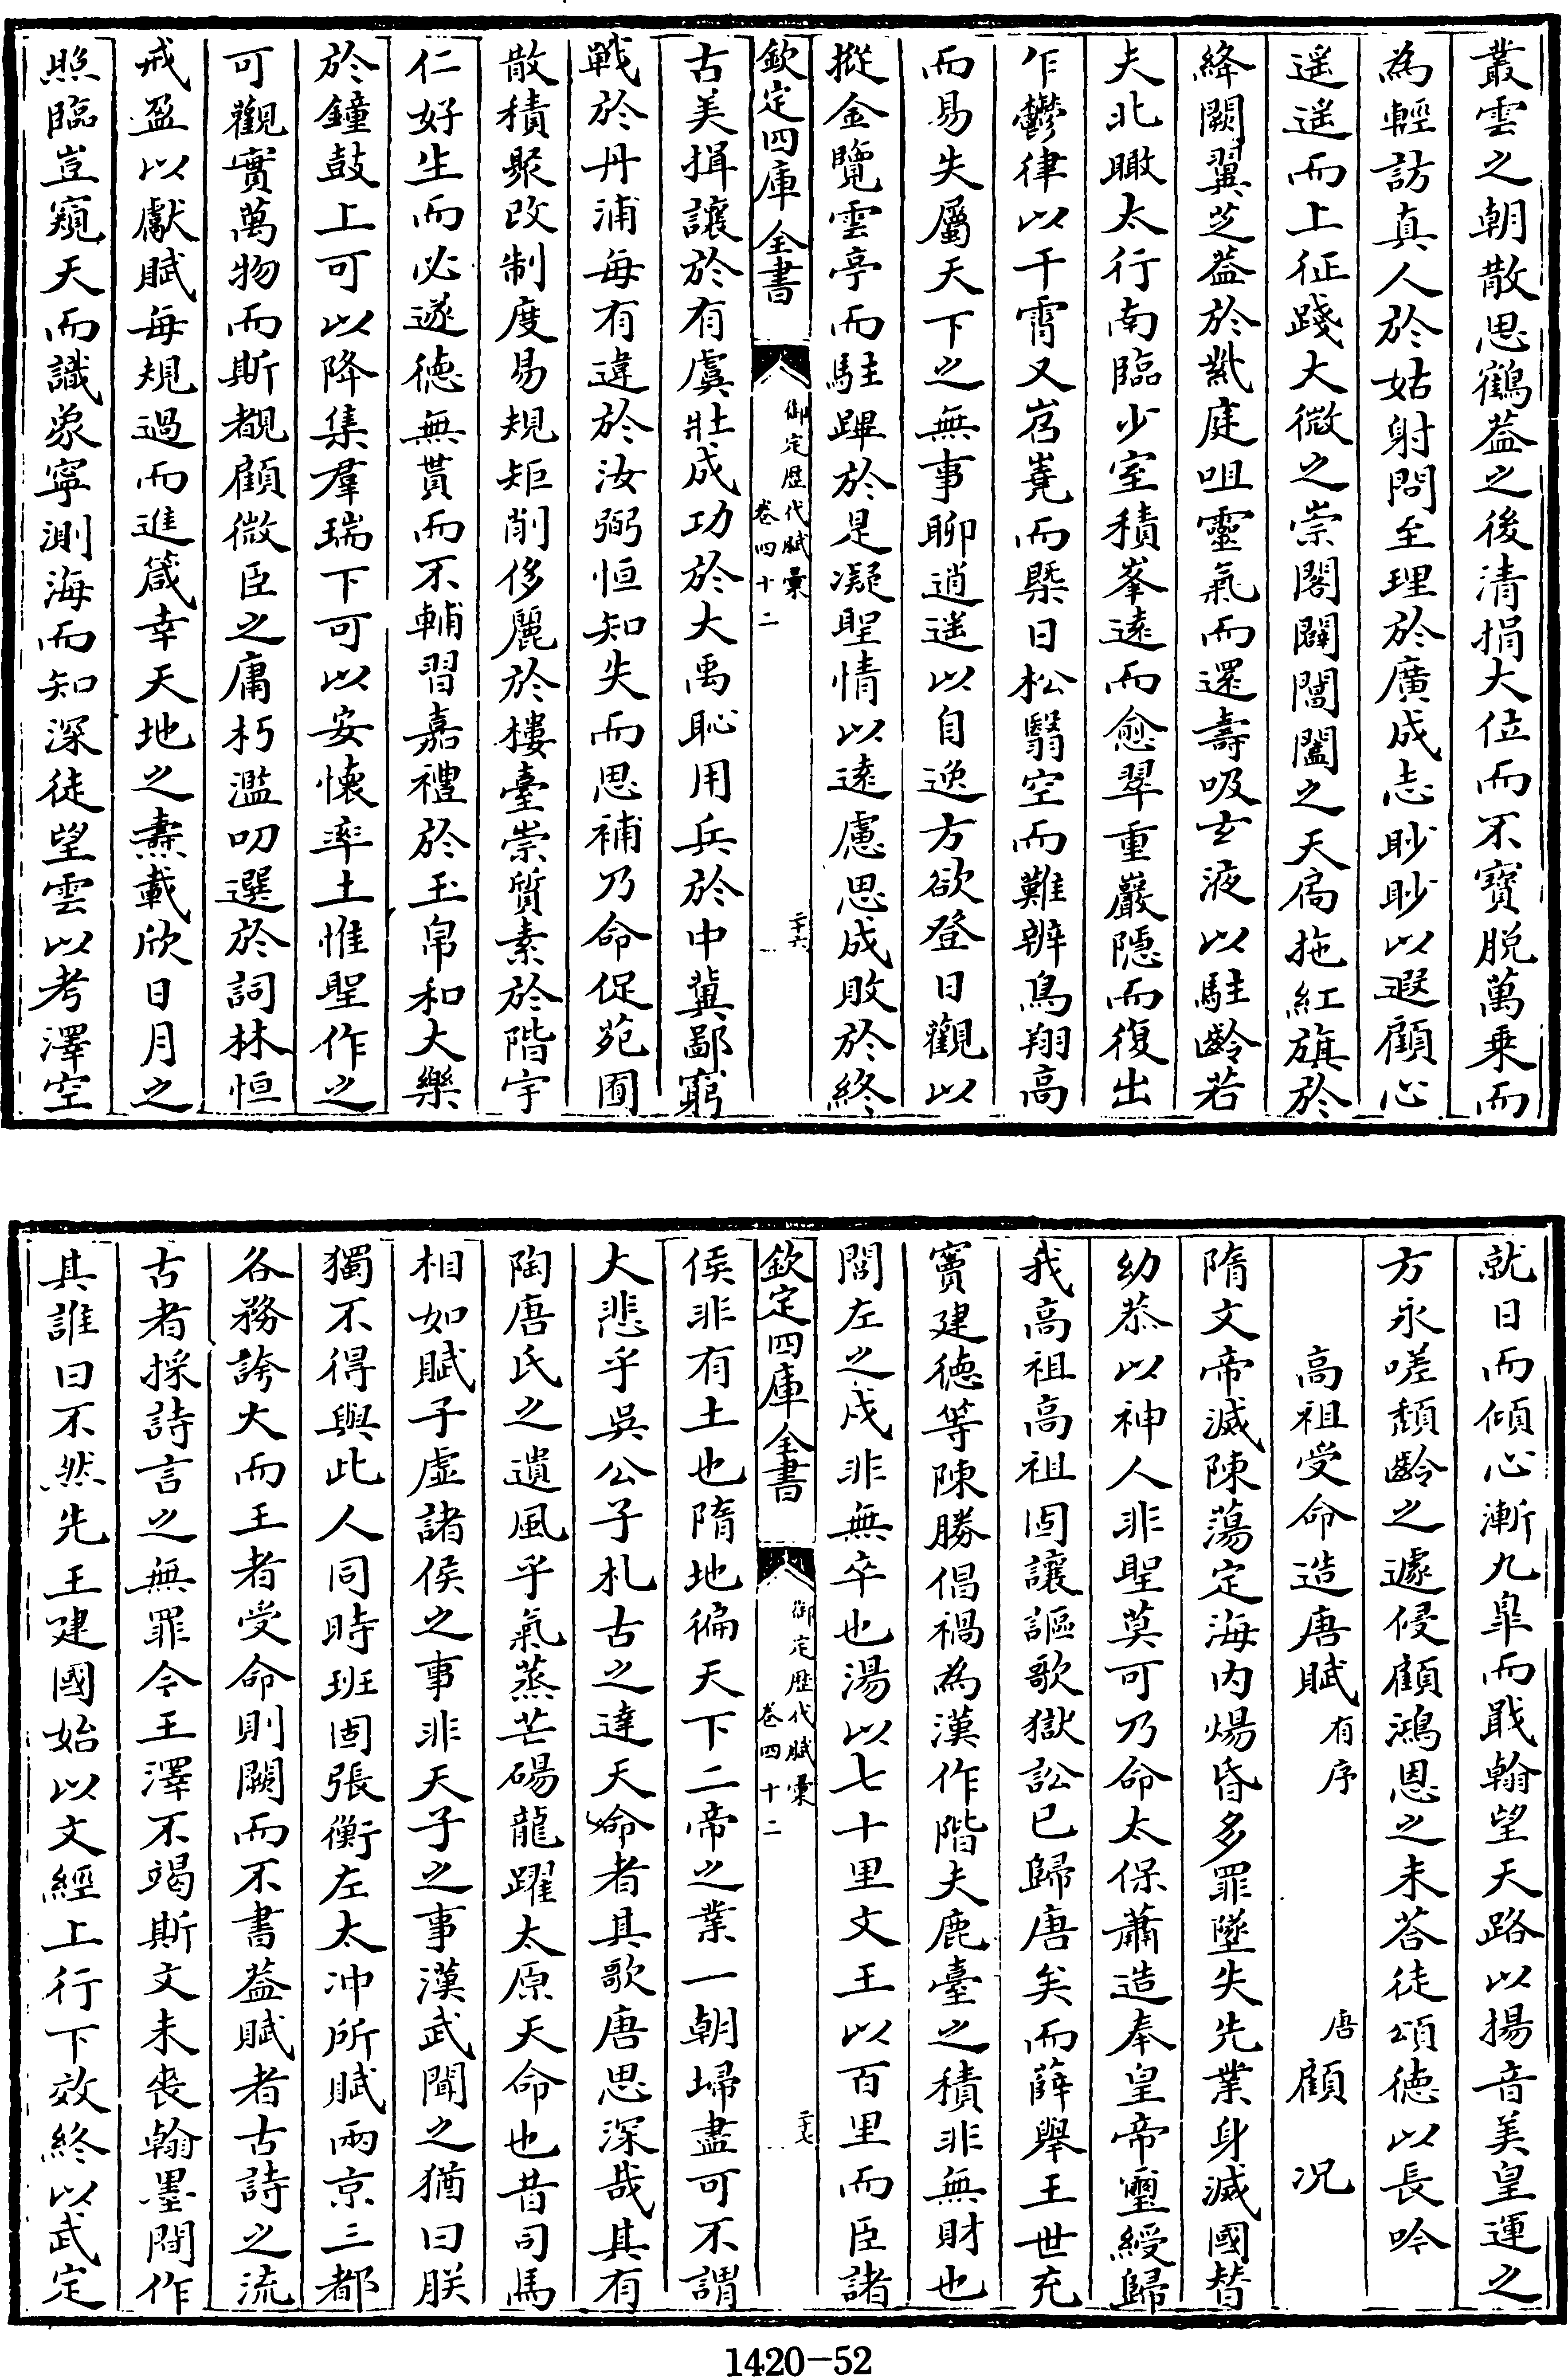 叢雲之朝散思鶴葢之後清捐大位而不寶脱萬乗而
為輕訪真人於姑射問至理於廣成志眇眇以遐顧心
遥遥而上征踐大微之崇閣闢閶闔之天扃拖紅旗於
絳闕翼芝葢於紫庭咀靈氣而還壽吸玄液以駐齡若
夫北瞰太行南臨少室積峯逺而愈翠重巖隠而復出
乍鬱律以干霄又岧嶤而槩日松翳空而難辨鳥翔高
而易失屬天下之無事聊逍遥以自逸方欲登日觀以
摐金覽雲亭而駐蹕於是凝聖情以遠慮思成敗於終
欽定四庫全書
御定歴代賦彙
卷四十二
二十六
古美揖讓於有虞壯成功於大禹恥用兵於中冀鄙窮
戰於丹浦每有違於汝弼恒知失而思補乃命促苑囿
散積聚改制度易規矩削侈麗於樓臺崇質素於階宇
仁好生而必遂德無貰而不輔習嘉禮於玉帛和大樂
於鐘鼓上可以降集羣瑞下可以安懐率土惟聖作之
可觀實萬物而斯覩顧微臣之庸朽濫叨選於詞林恒
戒盈以獻賦每規過而進箴幸天地之燾載欣日月之
照臨豈窺天而識象寧測海而知深徒望雲以考澤空
就日而傾心漸九臯而戢翰望天路以揚音美皇運之
方永嗟頽齡之遽侵顧鴻恩之未荅徒頌德以長吟
高祖受命造唐賦 有序 唐 顧況
隋文帝滅陳蕩定海内煬昏多罪墜失先業身滅國替
幼恭以神人非聖莫可乃命太保蕭造奉皇帝璽綬歸
我高祖高祖固讓謳歌獄訟已歸唐矣而薛舉王世充
竇建德等陳勝倡禍為漢作階夫鹿臺之積非無財也
閭左之戍非無卒也湯以七十里文王以百里而臣諸
欽定四庫全書
御定歴代賦彙
卷四十二
二十七
侯非有土也隋地徧天下二帝之業一朝埽盡可不謂
大悲乎吳公子札古之達天命者其歌唐思深哉其有
陶唐氏之遺風乎氣蒸芒碭龍躍太原天命也昔司馬
相如賦子虛諸侯之事非天子之事漢武聞之猶曰朕
獨不得與此人同時班固張衡左太冲所賦兩京三都
各務誇大而王者受命則闕而不書葢賦者古詩之流
古者採詩言之無罪今王澤不竭斯文未喪翰墨間作
其誰曰不然先王建國始以文經上行下效終以武定
1420-52